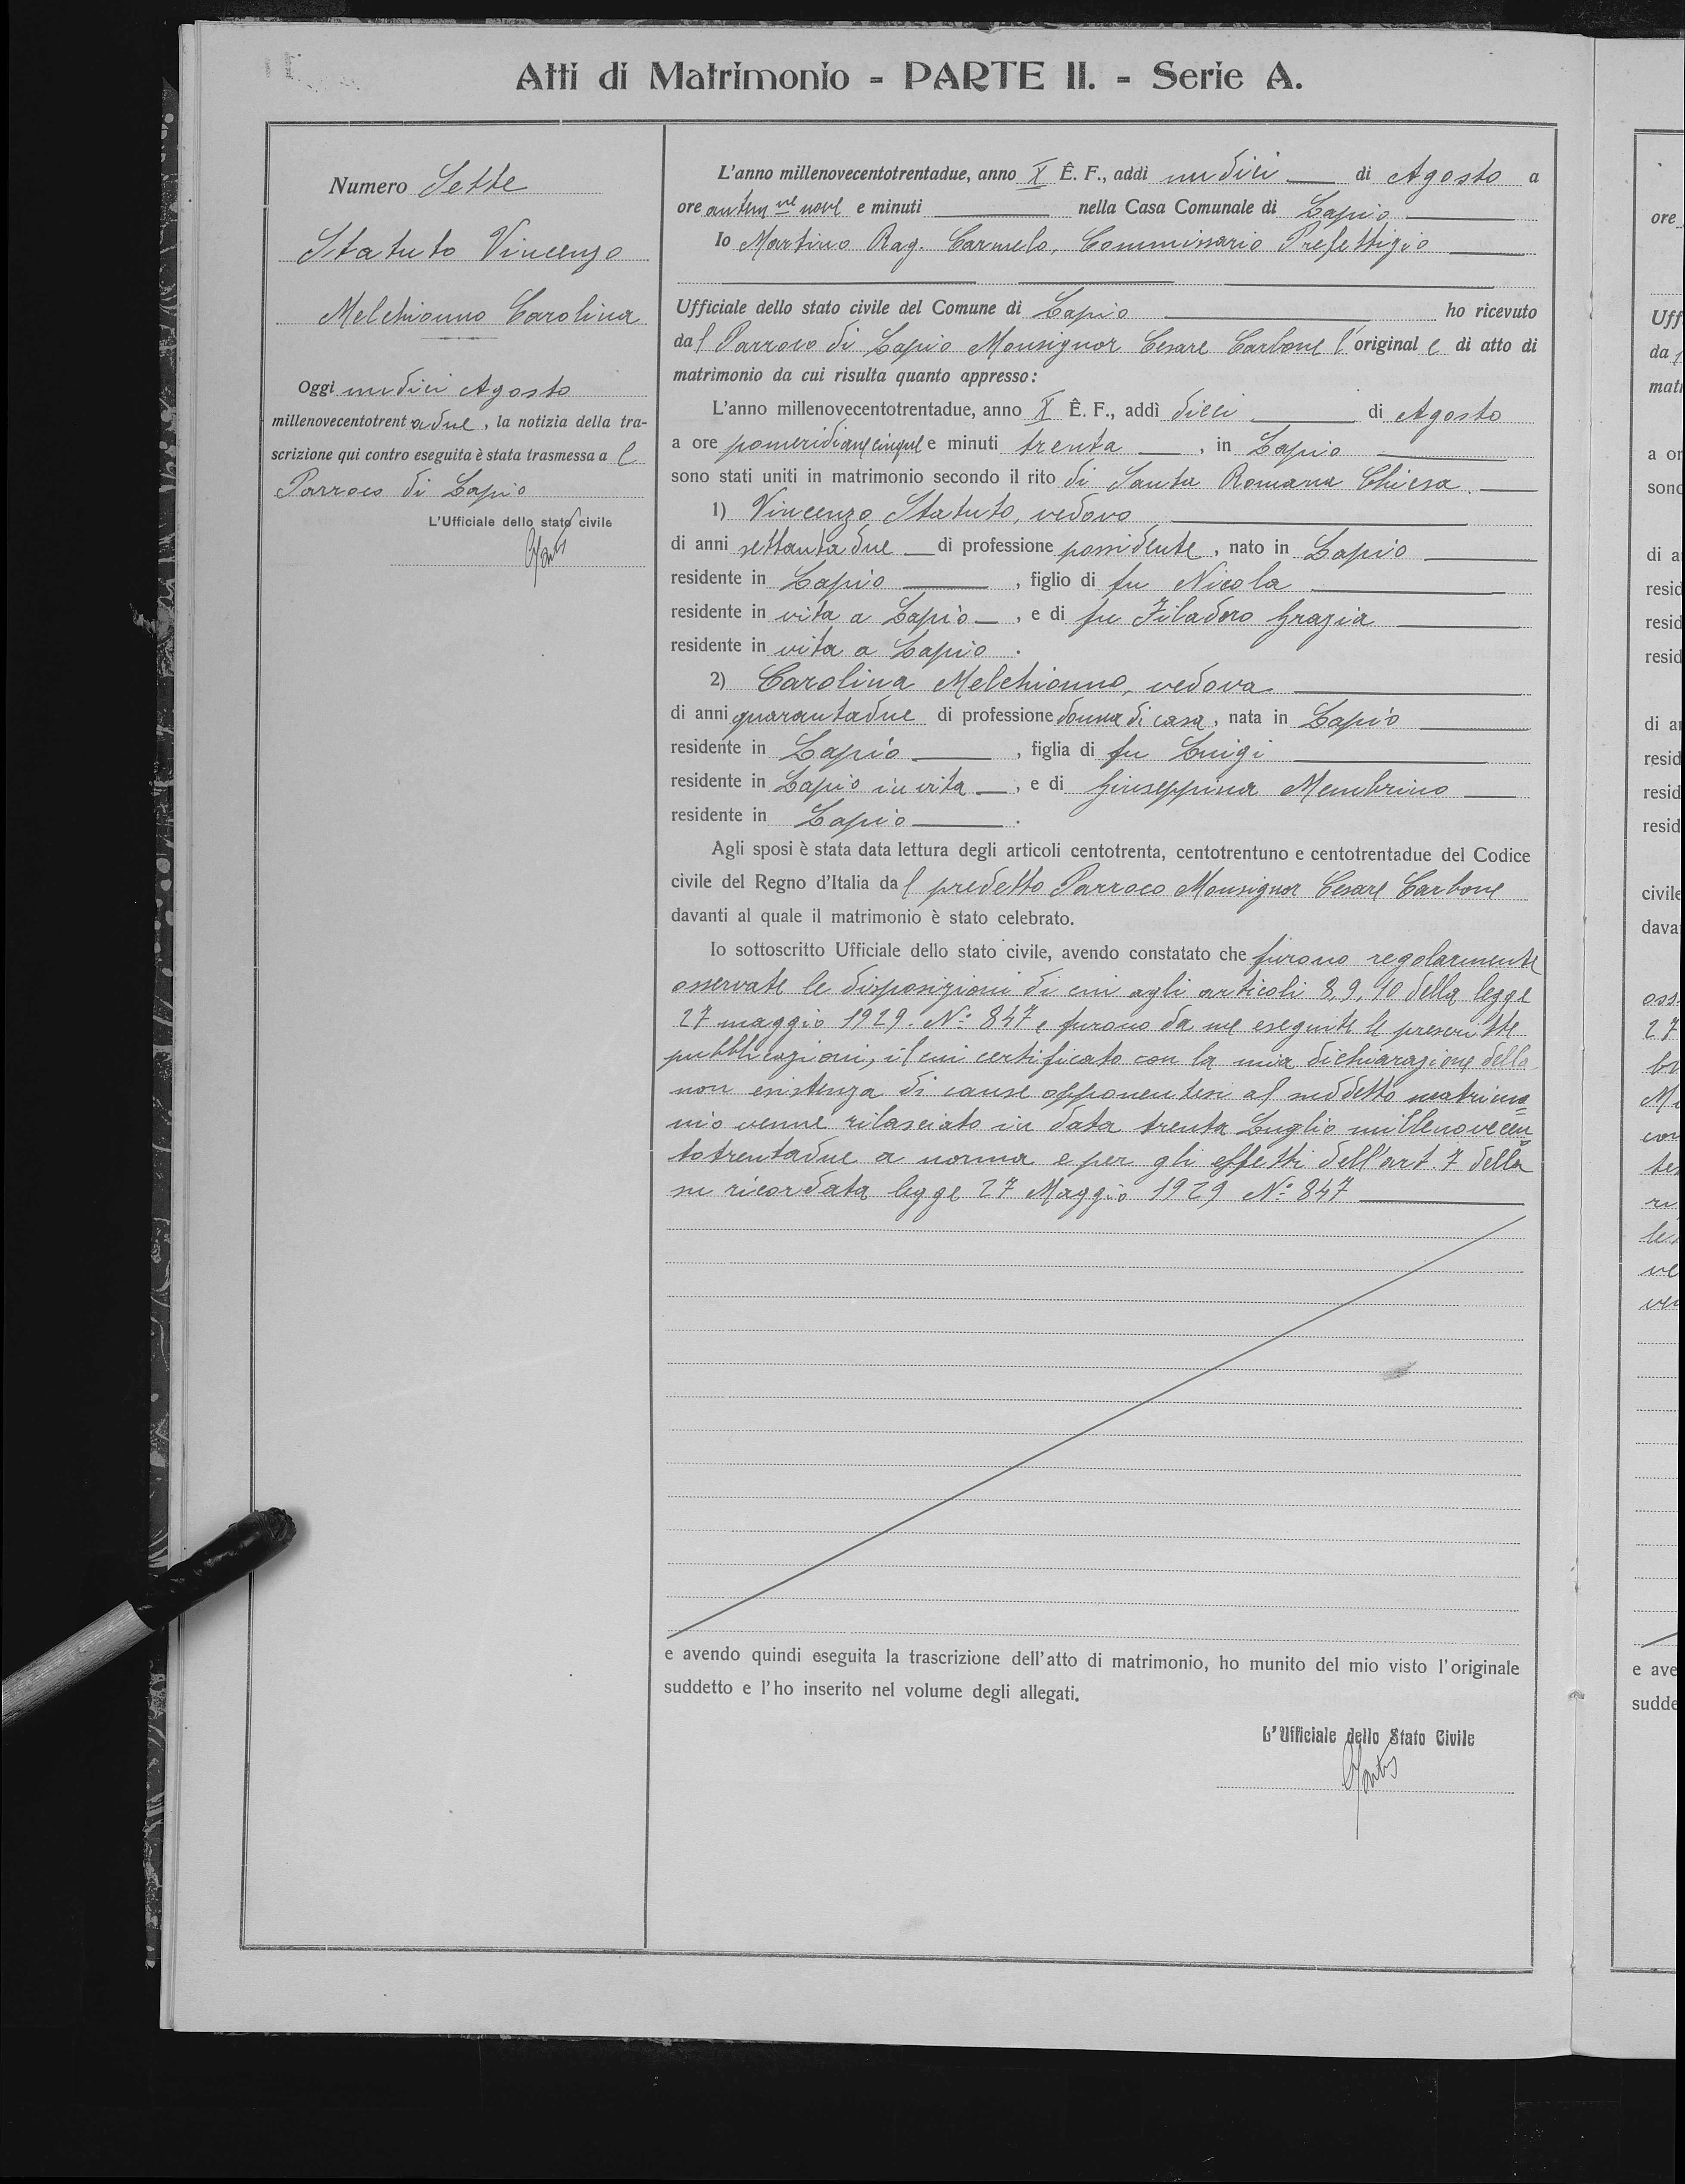 Atti di Matrimonio - PARTE II. - Serie A.
Numero Sette
Statuto Vincenzo
Melchionno Carolina
Oggi undici Agosto
millenovecentotrentadue, la notizia della tra-
scrizione qui contro eseguita è stata trasmessa al
Parroco di Lapio
L'Ufficiale dello stato civile
L'anno millenovecentotrentadue, anno X E. F., addì undici di Agosto a
ore antem.ne nove e minuti nella Casa Comunale di Lapio
Io Martino Rag. Carmelo, Commissario Prefettizio
Ufficiale dello stato civile del Comune di Lapio ho ricevuto
dal Parroco di Lapio Monsignor Cesare Carbone l'originale di atto di
matrimonio da cui risulta quanto appresso:
L'anno millenovecentotrentadue, anno X E. F., addì dieci di Agosto
a ore pomeridiane cinque e minuti trenta, in Lapio
sono stati uniti in matrimonio secondo il rito di Santa Romana Chiesa.
1) Vincenzo Statuto, vedovo
di anni settantadue di professione possidente, nato in Lapio
residente in Lapio, figlio di fu Nicola
residente in vita a Lapio, e di fu Filadoro Grazia
residente in vita a Lapio.
2) Carolina Melchionno, vedova
di anni quarantadue di professione donna di casa, nata in Lapio
residente in Lapio, figlia di fu Luigi
residente in Lapio in vita, e di Giuseppina Membrino
residente in Lapio.
Agli sposi è stata data lettura degli articoli centotrenta, centotrentuno e centotrentadue del Codice
civile del Regno d'Italia dal predetto Parroco Monsignor Cesare Carbone
davanti al quale il matrimonio è stato celebrato.
Io sottoscritto Ufficiale dello stato civile, avendo constatato che furono regolarmente
osservate le disposizioni di cui agli articoli 8, 9, 10 della legge
27 maggio 1929. No: 847 e furono da me eseguite le prescritte
pubblicazioni, il cui certificato con la mia dichiarazione della
non esistenza di cause opponentesi al suddetto matrimo=
nio venne rilasciato in data trenta Luglio millenovecen
totrentadue a norma e per gli effetti dell'art. 7 della
su ricordata legge 27 Maggio 1929 No: 847
e avendo quindi eseguita la trascrizione dell'atto di matrimonio, ho munito del mio visto l'originale
suddetto e l'ho inserito nel volume degli allegati.
L'Ufficiale dello Stato Civile